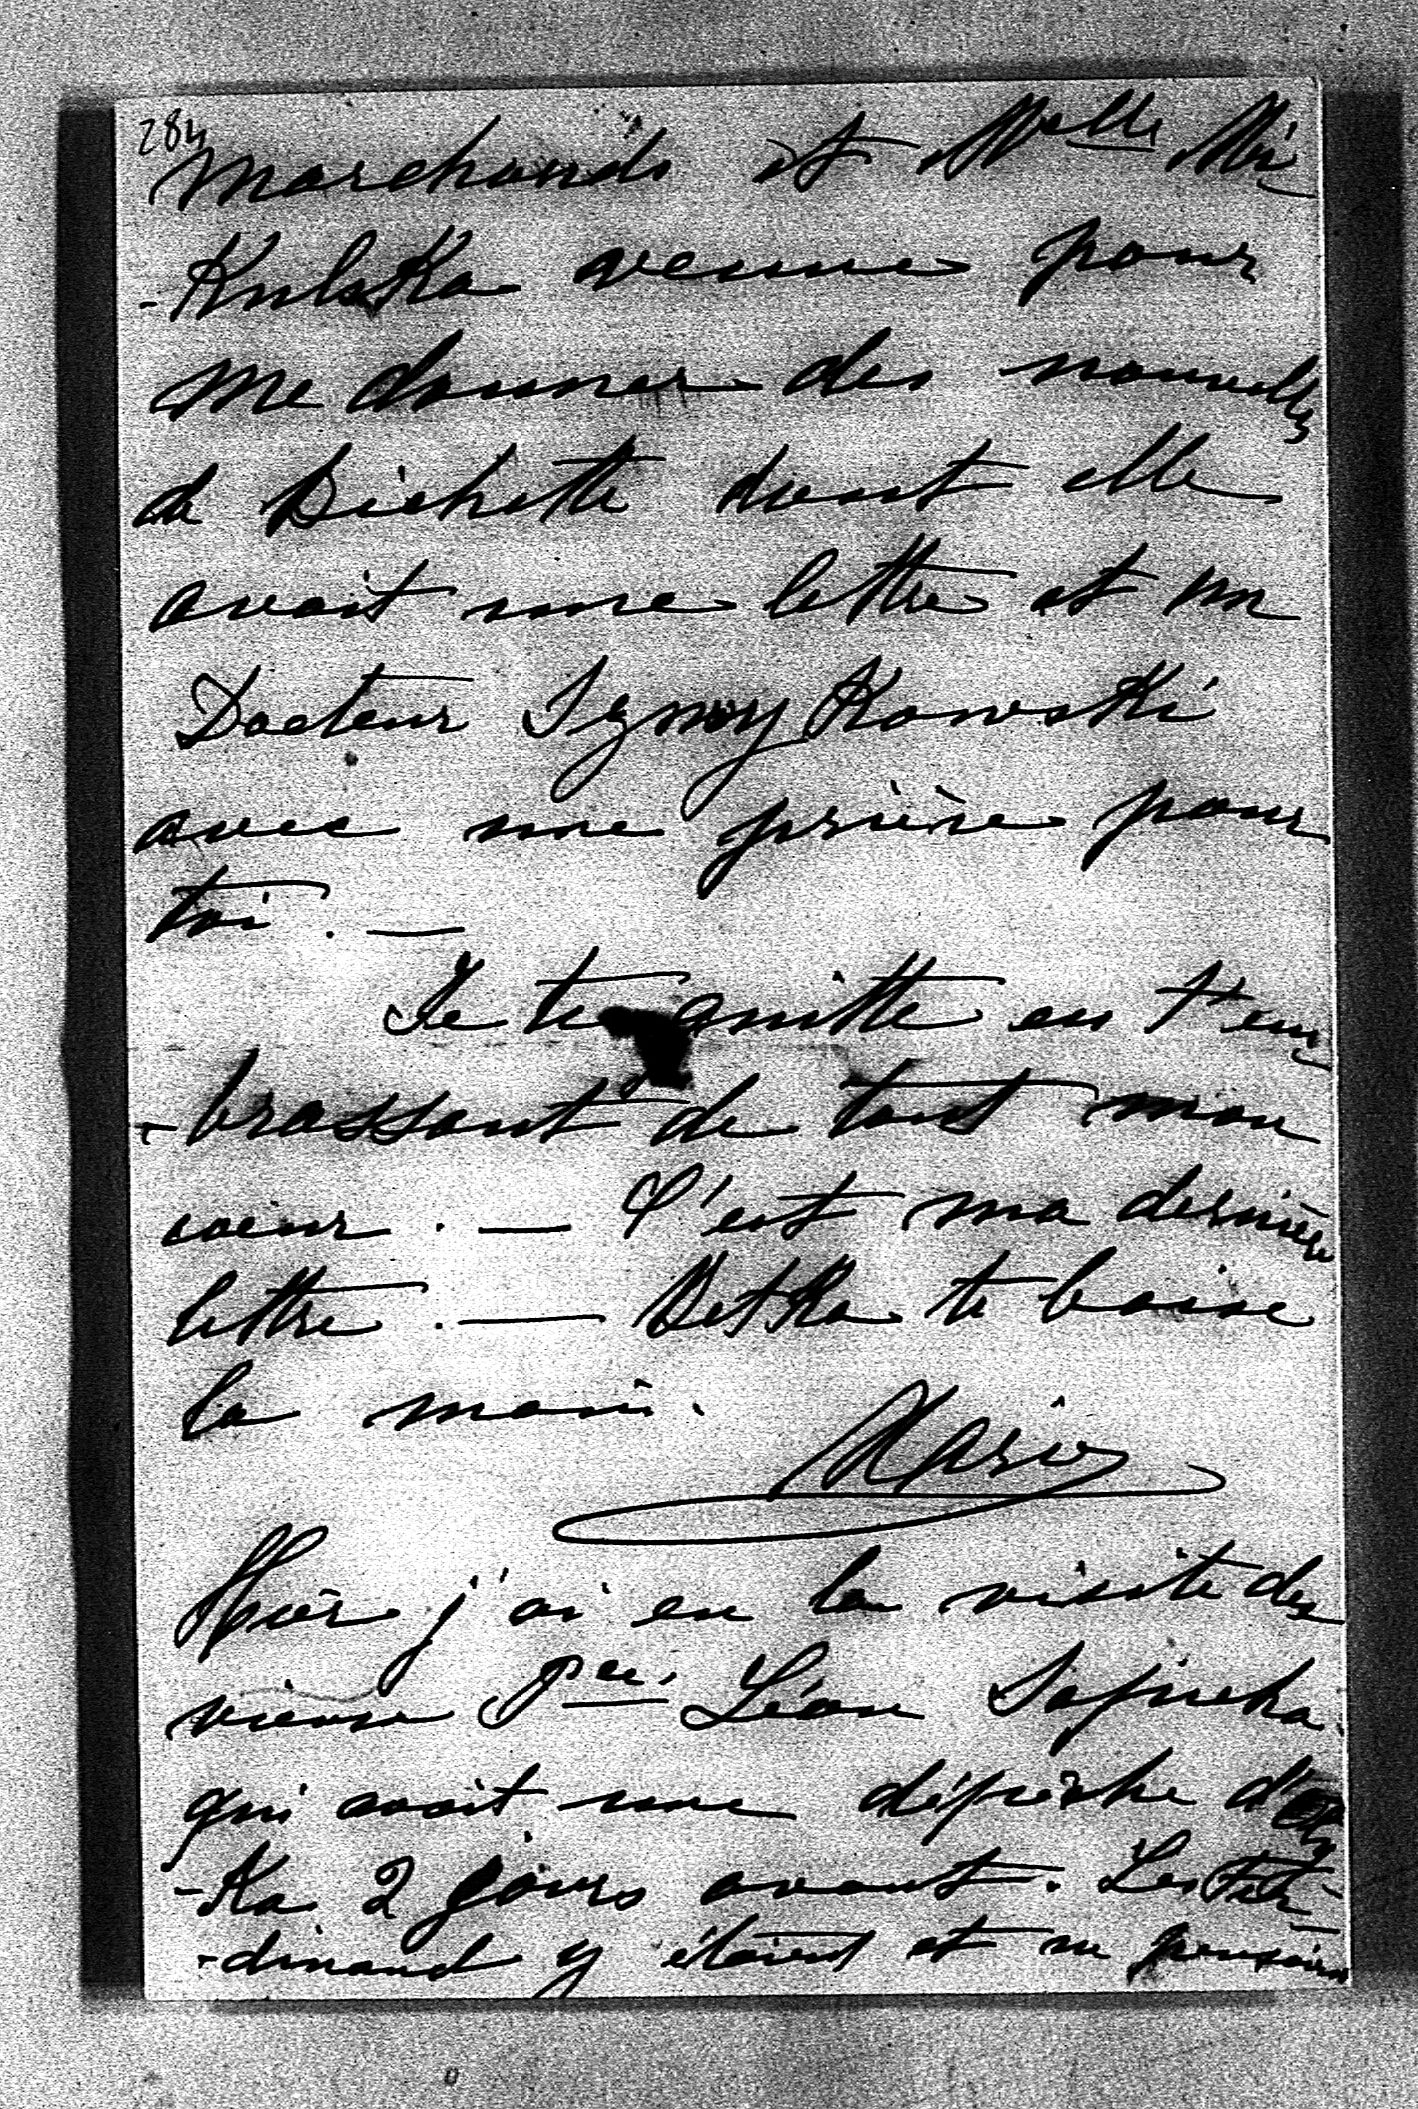 284
marchands et M^elle Mi
-Kulska venue pour
me donner des nouvelles
de Bichette dont elle
avait une lettre et un
Docteur Iznoy Kowski
avec une prière pour
toi. —
Je te quitte en t'em
-brassant de tout mon
coeur. — C'est ma dernière
lettre. — Betka te baise
la main.
Marie
Hier j'ai eu la visite du
vieux P^ce Léon Sapieha
qui avait une dépêche
-Ka 2 jours avant. Les Fer
-dinand y étaient et ne